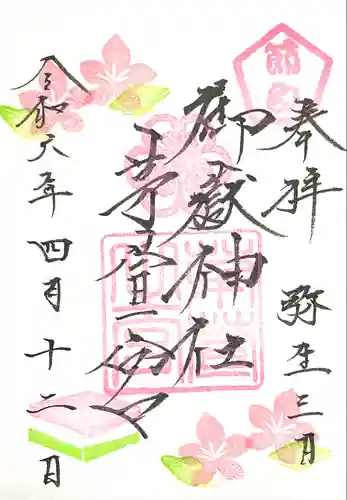 奉拝
弥生三月
御嶽神社
茅萱宮
令和六年四月十二日